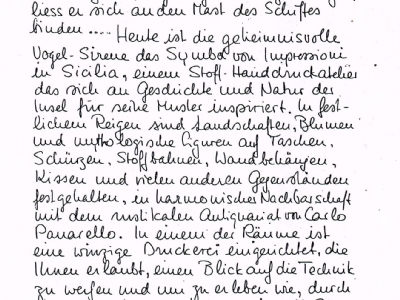 liess er sich an den Mast des Schiffes
binden .... Heute ist die geheimnisvolle
Vogel-Sirene das Symbol von Impressioni
in Sicilia, einem Stoff-Handdruckatelier
das sich an Geschichte und Natur der
Insel für seine Muster inspiriert. In fest-
lichem Reigen sind Landschaften, Blumen
und mythologische Figuren auf Taschen,
Schürzen, Stoffbahnen, Wandbehängen,
Kissen und vielen anderen Gegenständen
festgehalten, in harmonischer Nachbarschaft
mit dem rustikalen Antiquariat von Carlo
Panarello. In einem der Räume ist
eine winzige Druckerei eingerichtet, die
Ihnen erlaubt, einen Blick auf die Technik
zu werfen und mi zu erleben wie, durch